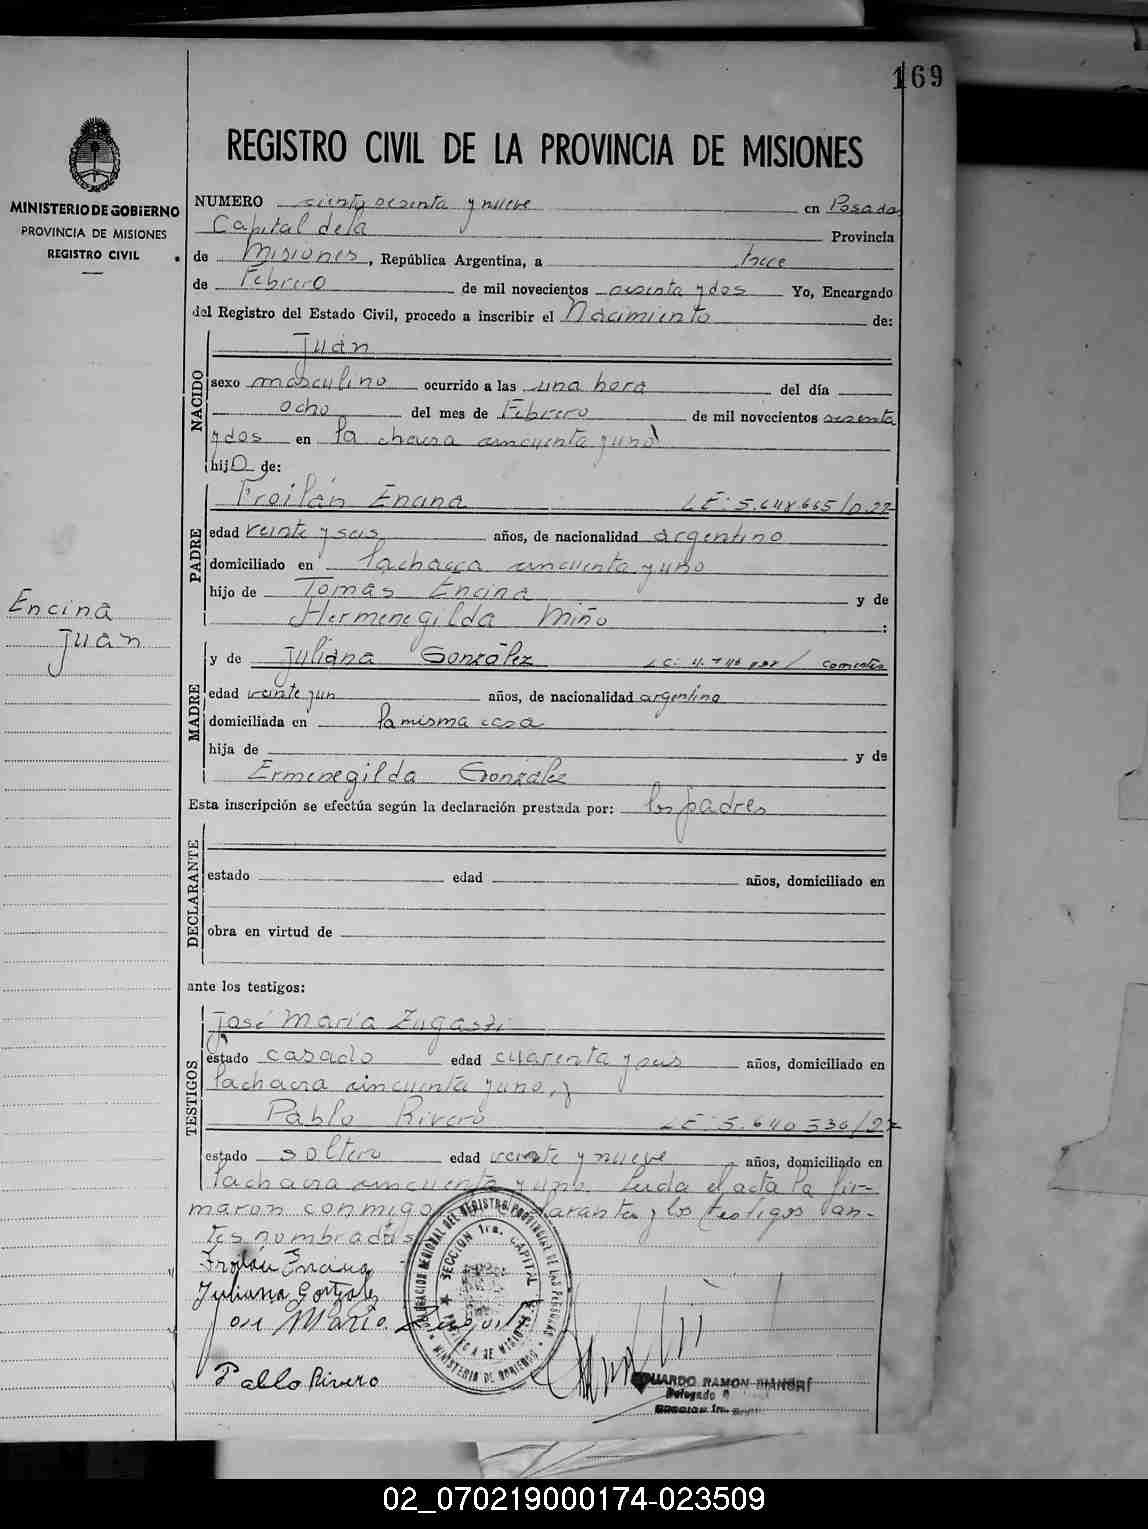 169
REGISTRO CIVIL DE LA PROVINCIA DE MISIONES
MINISTERIO DE GOBIERNO
PROVINCIA DE MISIONES
REGISTRO CIVIL
NUMERO ciento sesenta y nueve en Posadas
Capital de la Provincia
de Misiones, República Argentina, a trece
de Febrero de mil novecientos sesenta y dos Yo, Encargado
del Registro del Estado Civil, procedo a inscribir el Nacimiento de:
NACIDO
Juan
sexo masculino ocurrido a las una hora del día
ocho del mes de Febrero de mil novecientos sesenta
y dos en la chacra cincuenta y uno
hijo de:
PADRE
Froilán Encina LE: 5.648.665/D.22
edad veinte y seis años, de nacionalidad argentino
domiciliado en la chacra cincuenta y uno
hijo de Tomas Encina y de
Hermenegilda Miño :
Encina
Juan
MADRE
y de Juliana González
edad veinte y un años, de nacionalidad argentina
domiciliada en la misma casa
hija de y de
Ermenegilda González
Esta inscripción se efectúa según la declaración prestada por: los padres
DECLARANTE
estado edad años, domiciliado en
obra en virtud de
ante los testigos:
TESTIGOS
José María Zugasti
estado casado edad cuarenta y seis años, domiciliado en
la chacra cincuenta y uno, y
Pablo Rivero LE: 5.640.330/22
estado soltero edad veinte y nueve años, domiciliado en
la chacra cincuenta y uno. Leida el acta la fir-
maron conmigo y los testigos an-
tes nombrados
Froilán Encina
Juliana González
José María
Pablo Rivero
SECCION 1ra. CAPITAL
MINISTERIO DE GOBIERNO
EDUARDO RAMON BIANGRI
Delegado
Seccion 1ra.
02_070219000174-023509